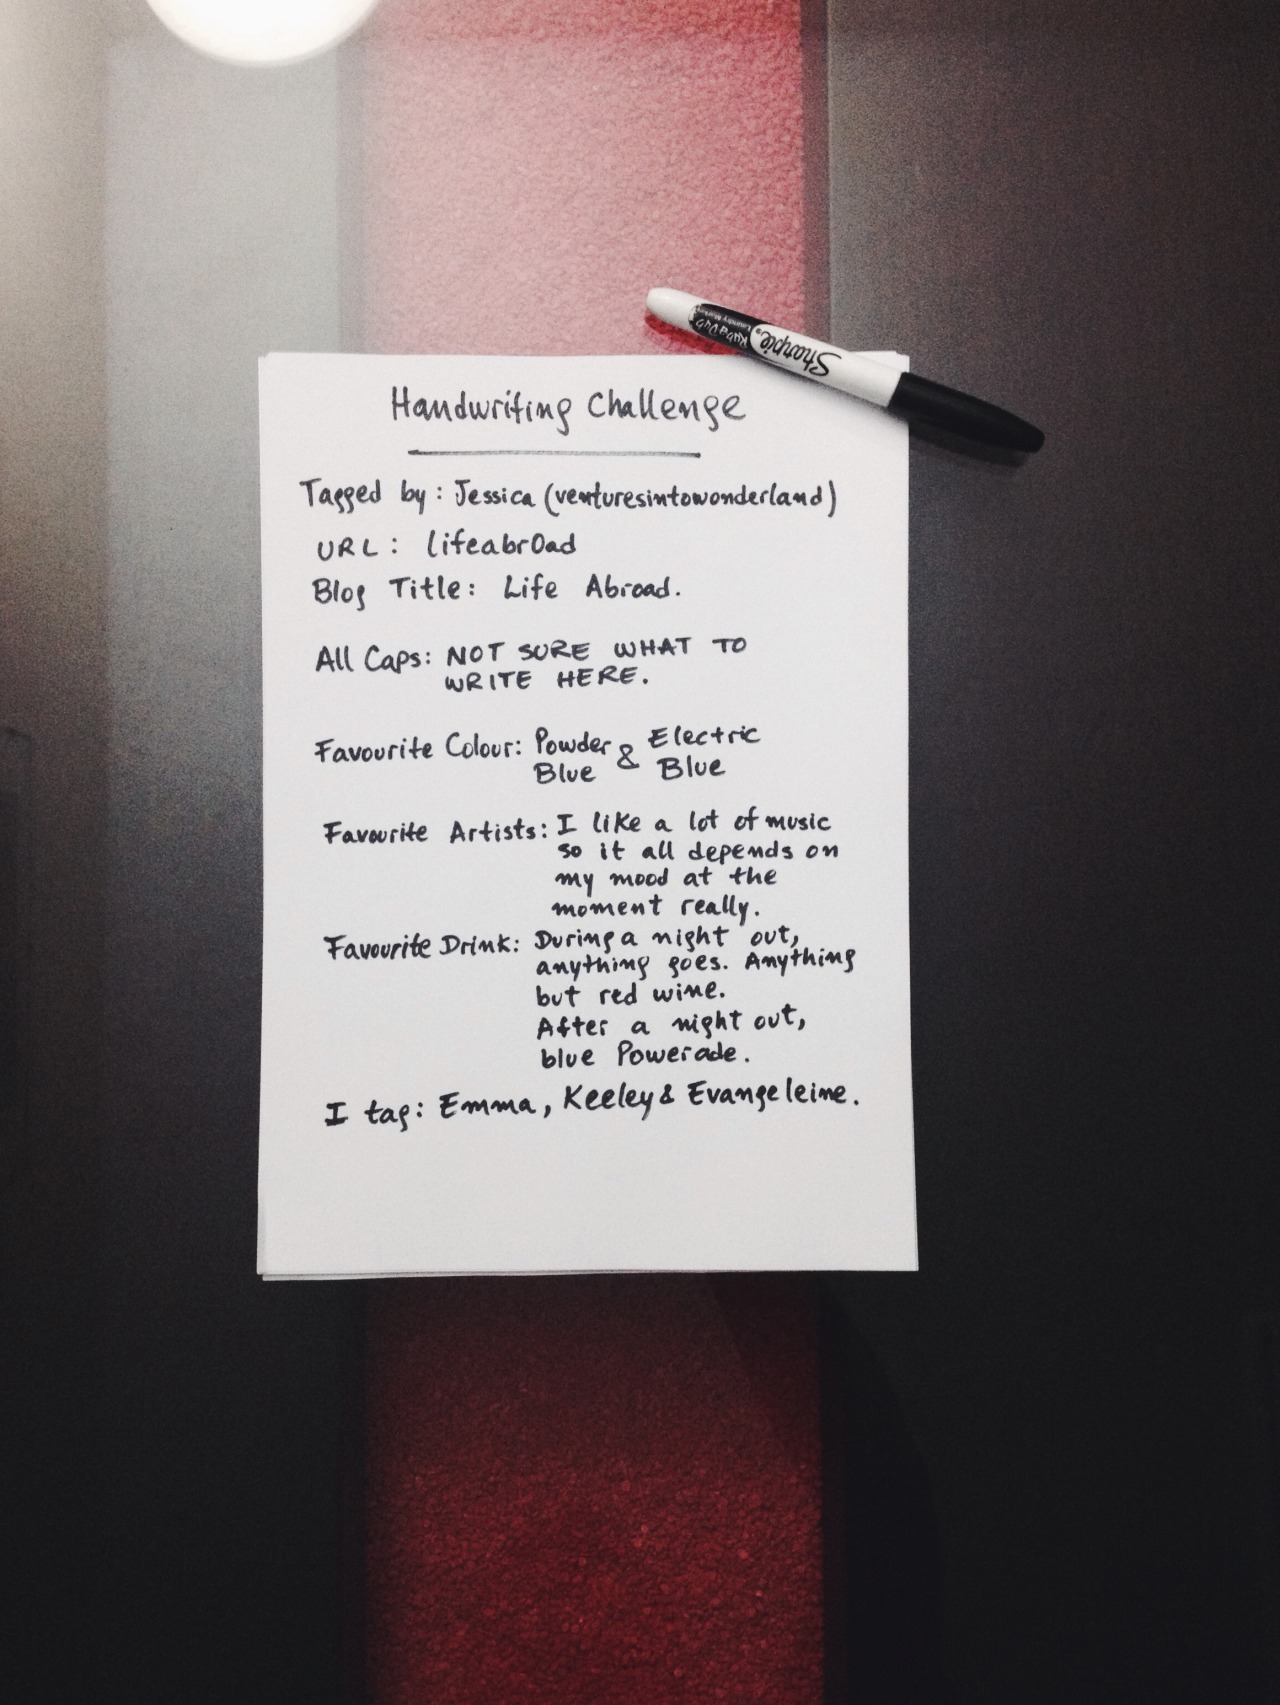 Sharpie
Rub a Dub
Laundry Marker
Handwriting Challenge
Tagged by: Jessica (venturesintowonderland)
URL: lifeabr0ad
Blog Title: Life Abroad.
All Caps: NOT SURE WHAT TO
WRITE HERE.
Favourite Colour: Powder & Electric
Blue Blue
Favourite Artists: I like a lot of music
so it all depends on
my mood at the
moment really.
Favourite Drink: During a night out,
anything goes. Anything
but red wine.
After a night out,
blue Powerade.
I tag: Emma, Keeley & Evangeleine.